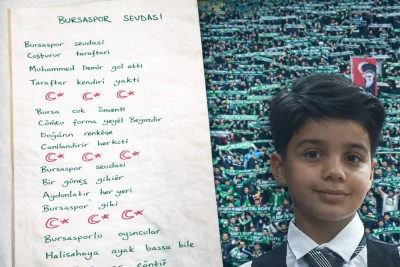 BURSASPOR SEVDASI
Bursaspor sevdasi
Coşturur taraftari
Muhammed Demir gol atti
Taraftar kendiri yakti
Bursa cok önemti
Cünkü forma yeşil Beyazdır
Doğanın renkğe
Canlandirir herkiti
Bursaspor sevdasi
Bir güneş gibier
Aydınlatır her yeri
Bursaspor gibi
Bursasporlu oyuncular
Halisahaya ayak bassa bile